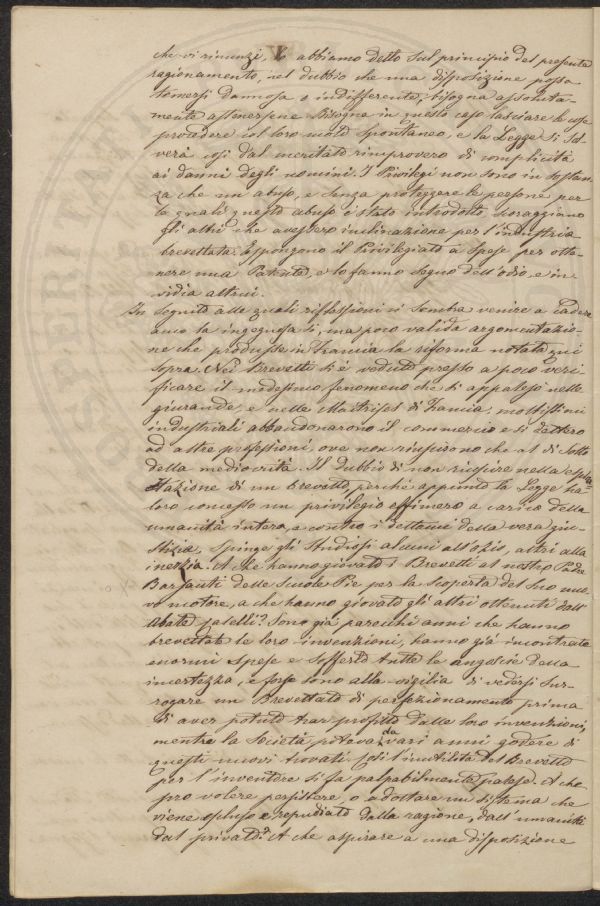 che vi rinunzi, Lo abbiamo detto sul principio del presente
ragionamento, nel dubbio che una disposizione possa
tornarsi dannosa o indifferente, bisogna assoluta-
mente astenersene Bisogna in questo caso lasciare le cose
procedere col loro moto spontaneo, e la Legge si sal-
verà così dal meritato rimprovero di complicità
ai danni degli uomini. I Privilegi non sono in sostan-
za che un abuso, e senza proteggere le persone per
le quali questo abuso è stato introdotto, scoraggiano
gli altri che avessero inclinazione per l'industria
brevettata. Espongono il Privilegiato a spese per otte-
nere una Patente, e lo fanno segno dell'odio e in-
vidia altrui.
In seguito alle quali riflessioni ci sembra venire a cadere
anco la ingegnosa sì, ma poco valida argomentazio-
ne che produsse in Francia la riforma notata qui
sopra. Nei Brevetti si è veduto presto a poco veri-
ficare il medesimo fenomeno che si appalesò nelle
giurande, e nelle Maitrises di Francia; moltissimi
industriali abbandonarono il commercio e si dettero
ad altre professioni, ove non riuscirono che al di sotto
della mediocrità. Il dubbio di non riuscire nella esplo-
tazione di un brevetto, perchè appunto la Legge ha
loro concesso un privilegio effimero a carico della
umanità intera, e contro i dettami della vera giu-
stizia, spinge gli Studiosi alcuni all'ozio, altri alla
inerzia. A che hanno giovato i Brevetti al nostro Padre
Barsanti delle Scuole Pie per la scoperta del suo nuo-
vo motore, a che hanno giovato gli altri ottenuti dall'
Abate Caselli? Sono già parecchi anni che hanno
brevettate le loro invenzioni, hanno già incontrate
enormi spese e sofferto tutte le angoscie della
incertezza, e forse sono alla vigilia di vedersi sur-
rogare un Brevettato di perfezionamento prima
di aver potuto trar profitto dalle loro invenzioni,
mentre la Società poteva da vari anni godere di
questi nuovi trovati. Così l'inutilità del Brevetto
per l'inventore si fa palpabilmente palese. A che
pro volere persistere, o adottare un sistema che
viene escluso e repudiato dalla ragione, dall'umanità
dal privato? A che aspirare a una disposizione